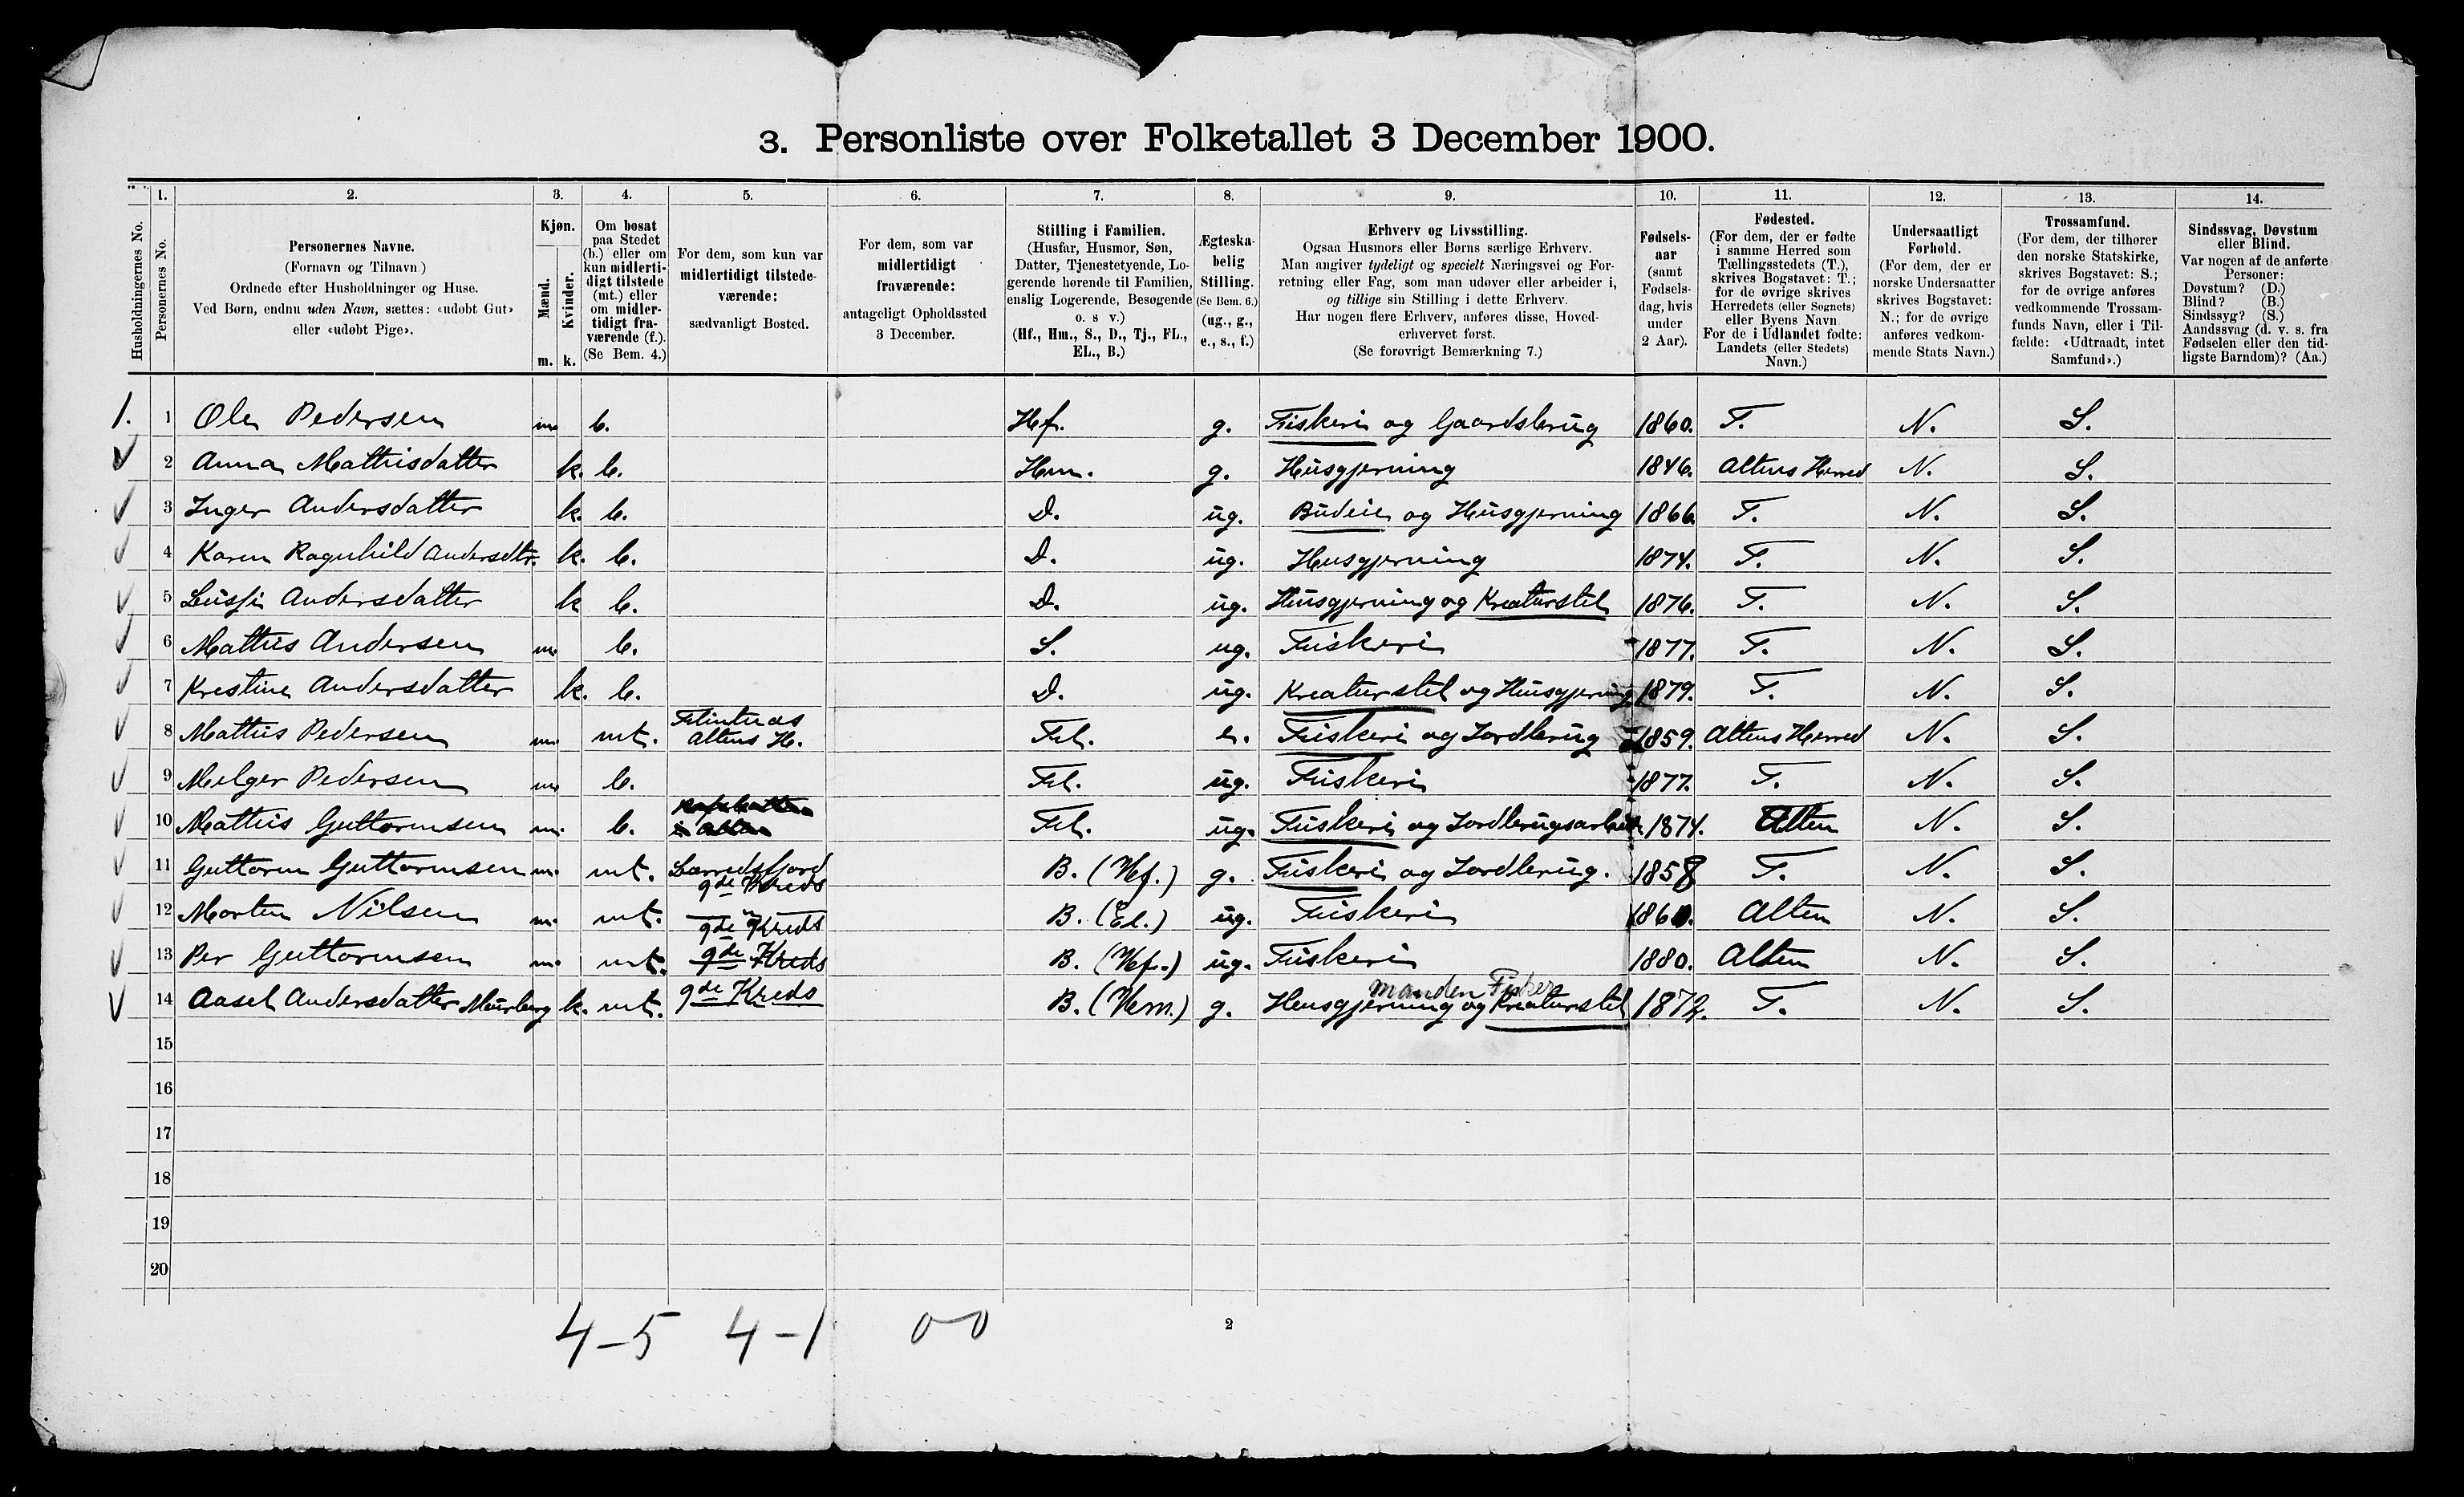 3. Personliste over Folketallet 3 December 1900.
1. 2. 3. 4. 5. 6. 7. 8. 9. 10. 11. 12. 13. 14.
Husholdningernes No.
Personernes No.
Personernes Navne.
(Fornavn og Tilnavn)
Ordnede efter Husholdninger og Huse.
Ved Børn, endnu uden Navn, sættes: «udøbt Gut»
eller «udøbt Pige».
Kjøn.
Mænd.
Kvinder.
m. k.
Om bosat
paa Stedet
(b.) eller om
kun midlerti-
digt tilstede
(mt.) eller
om midler-
tidigt fra-
værende (f.).
(Se Bem. 4.)
For dem, som kun var
midlertidigt tilstede-
værende:
sædvanligt Bosted.
For dem, som var
midlertidigt
fraværende:
antageligt Opholdssted
3 December.
Stilling i Familien.
(Husfar, Husmor, Søn,
Datter, Tjenestetyende, Lo-
gerende hørende til Familien,
enslig Logerende, Besøgende
o. s v.)
(Hf., Hm., S., D., Tj., FL.,
EL., B.)
Ægteska-
belig
Stilling.
(Se Bem. 6.)
(ug., g.,
e., s., f.)
Erhverv og Livsstilling.
Ogsaa Husmors eller Børns særlige Erhverv.
Man angiver tydeligt og specielt Næringsvei og For-
retning eller Fag, som man udøver eller arbeider i,
og tillige sin Stilling i dette Erhverv.
Har nogen flere Erhverv, anføres disse, Hoved-
erhvervet først.
(Se forøvrigt Bemærkning 7.)
Fødsels-
aar
(samt
Fødsels-
dag, hvis
under
2 Aar).
Fødested.
(For dem, der er fødte
i samme Herred som
Tællingsstedets (T.),
skrives Bogstavet: T.;
for de øvrige skrives
Herredets (eller Sognets)
eller Byens Navn.
For de i Udlandet fødte:
Landets (eller Stedets)
Navn.)
Undersaatligt
Forhold.
(For dem, der er
norske Undersaatter
skrives Bogstavet:
N.; for de øvrige
anføres vedkom-
mende Stats Navn.)
Trossamfund.
(For dem, der tilhører
den norske Statskirke,
skrives Bogstavet: S.;
for de øvrige anføres
vedkommende Trossam-
funds Navn, eller i Til-
fælde: «Udtraadt, intet
Samfund».)
Sindssvag, Døvstum
eller Blind.
Var nogen af de anførte
Personer:
Døvstum? (D.)
Blind? (B.)
Sindssyg? (S.)
Aandssvag (d. v. s. fra
Fødselen eller den tid-
ligste Barndom)? (Aa.)
1. 1 Ole Pedersen m. b. Hf. g. Fiskeri og Gaardsbrug 1860. T. N. S.
2 Anna Mathisdatter k. b. Hm. g. Husgjerning 1846. Altens Herred N. S.
3 Inger Andersdatter k. b. D. ug. Budeie og Husgjerning 1866 T. N. S.
4 Karen Ragnhild Andersdtr. k. b. D. ug. Husgjerning 1874. T. N. S.
5 Andersdatter k b. D. ug. Husgjerning og Kreaturstel 1876. T. N. S.
6 Mathis Andersen m. b. S. ug. Fiskeri 1877. T. N. S.
7 Kristine Andersdatter k. b. D. ug. Kreaturstel og Husgjerning 1879. T. N. S.
8 Mathis Pedersen m. mt. Flintnæs
Altens H. FL. e. Fiskeri og Jordbrug 1859. Altens Herred N. S.
9 Melger Pedersen m b. FL. ug. Fiskeri 1877. T. N. S.
10 Mathis Guttormsen m. b. FL. ug. Fiskeri og Jordbrugsarbeid 1874. Alten N. S.
11 Guttorm Guttormsen m. mt. Lerredsfjord
9de Kreds B. (Hf.) g. Fiskeri og Jordbrug. 1858 T. N. S.
12 Morten Nilsen m. mt. — " —
9de Kreds B. (El.) ug. Fiskeri 1860. Alten N. S.
13 Per Guttormsen m. mt. 9de Kreds B. (Hf.) ug. Fiskeri 1880. Alten N. S.
manden Fisker
14 Aasel Andersdatter Murberg k. mt. 9de Kreds B. (Hm.) g. Husgjerning og Kreaturstel 1872. T. N. S.
15
16
17
18
19
20
4-5 4-1 0-0
2